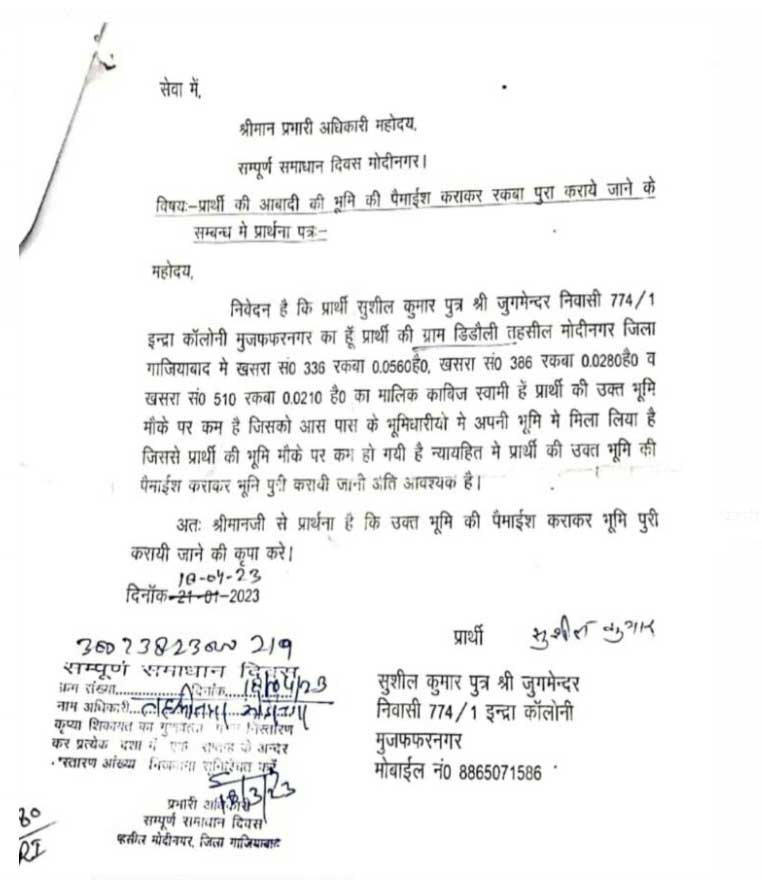 सेवा में,
श्रीमान प्रभारी अधिकारी महोदय,
सम्पूर्ण समाधान दिवस मोदीनगर।
विषयः–प्रार्थी की आबादी की भूमि की पैमाईश कराकर रकबा पुरा कराये जाने के
सम्बन्ध मे प्रार्थना पत्रः–
महोदय,
निवेदन है कि प्रार्थी सुशील कुमार पुत्र श्री जुगमेन्दर निवासी 774/1
इन्द्रा कॉलोनी मुजफफरनगर का हूँ प्रार्थी की ग्राम डिडौली तहसील मोदीनगर जिला
गाजियाबाद मे खसरा सं0 336 रकबा 0.0560है0, खसरा सं0 386 रकबा 0.0280है0 व
खसरा सं0 510 रकबा 0.0210 है0 का मालिक काबिज स्वामी हैं प्रार्थी की उक्त भूमि
मौके पर कम है जिसको आस पास के भूमिधारीयो मे अपनी भूमि मे मिला लिया है
जिससे प्रार्थी की भूमि मौके पर कम हो गयी है न्यायहित मे प्रार्थी की उक्त भूमि की
पैमाईश कराकर भूमि पुरी करायी जानी अति आवश्यक है।
अतः श्रीमानजी से प्रार्थना है कि उक्त भूमि की पैमाईश कराकर भूमि पुरी
करायी जाने की कृपा करे।
18-04-23
दिनॉक-21-01-2023
प्रार्थी सुशील कुमार
219
सम्पूर्ण समाधान दिवस
क्रम संख्या..............दिनांक....18/04/23
नाम अधिकारी...
कृप्या शिकायत का गुणवत्ता निस्तारण
कर प्रत्येक दशा में एक सप्ताह के अन्दर
आंख्या
18/3/23
प्रभारी अधिकारी
सम्पूर्ण समाधान दिवस
जिला गाजियाबाद
सुशील कुमार पुत्र श्री जुगमेन्दर
निवासी 774/1 इन्द्रा कॉलोनी
मुजफफरनगर
मोबाईल नं0 8865071586
RI